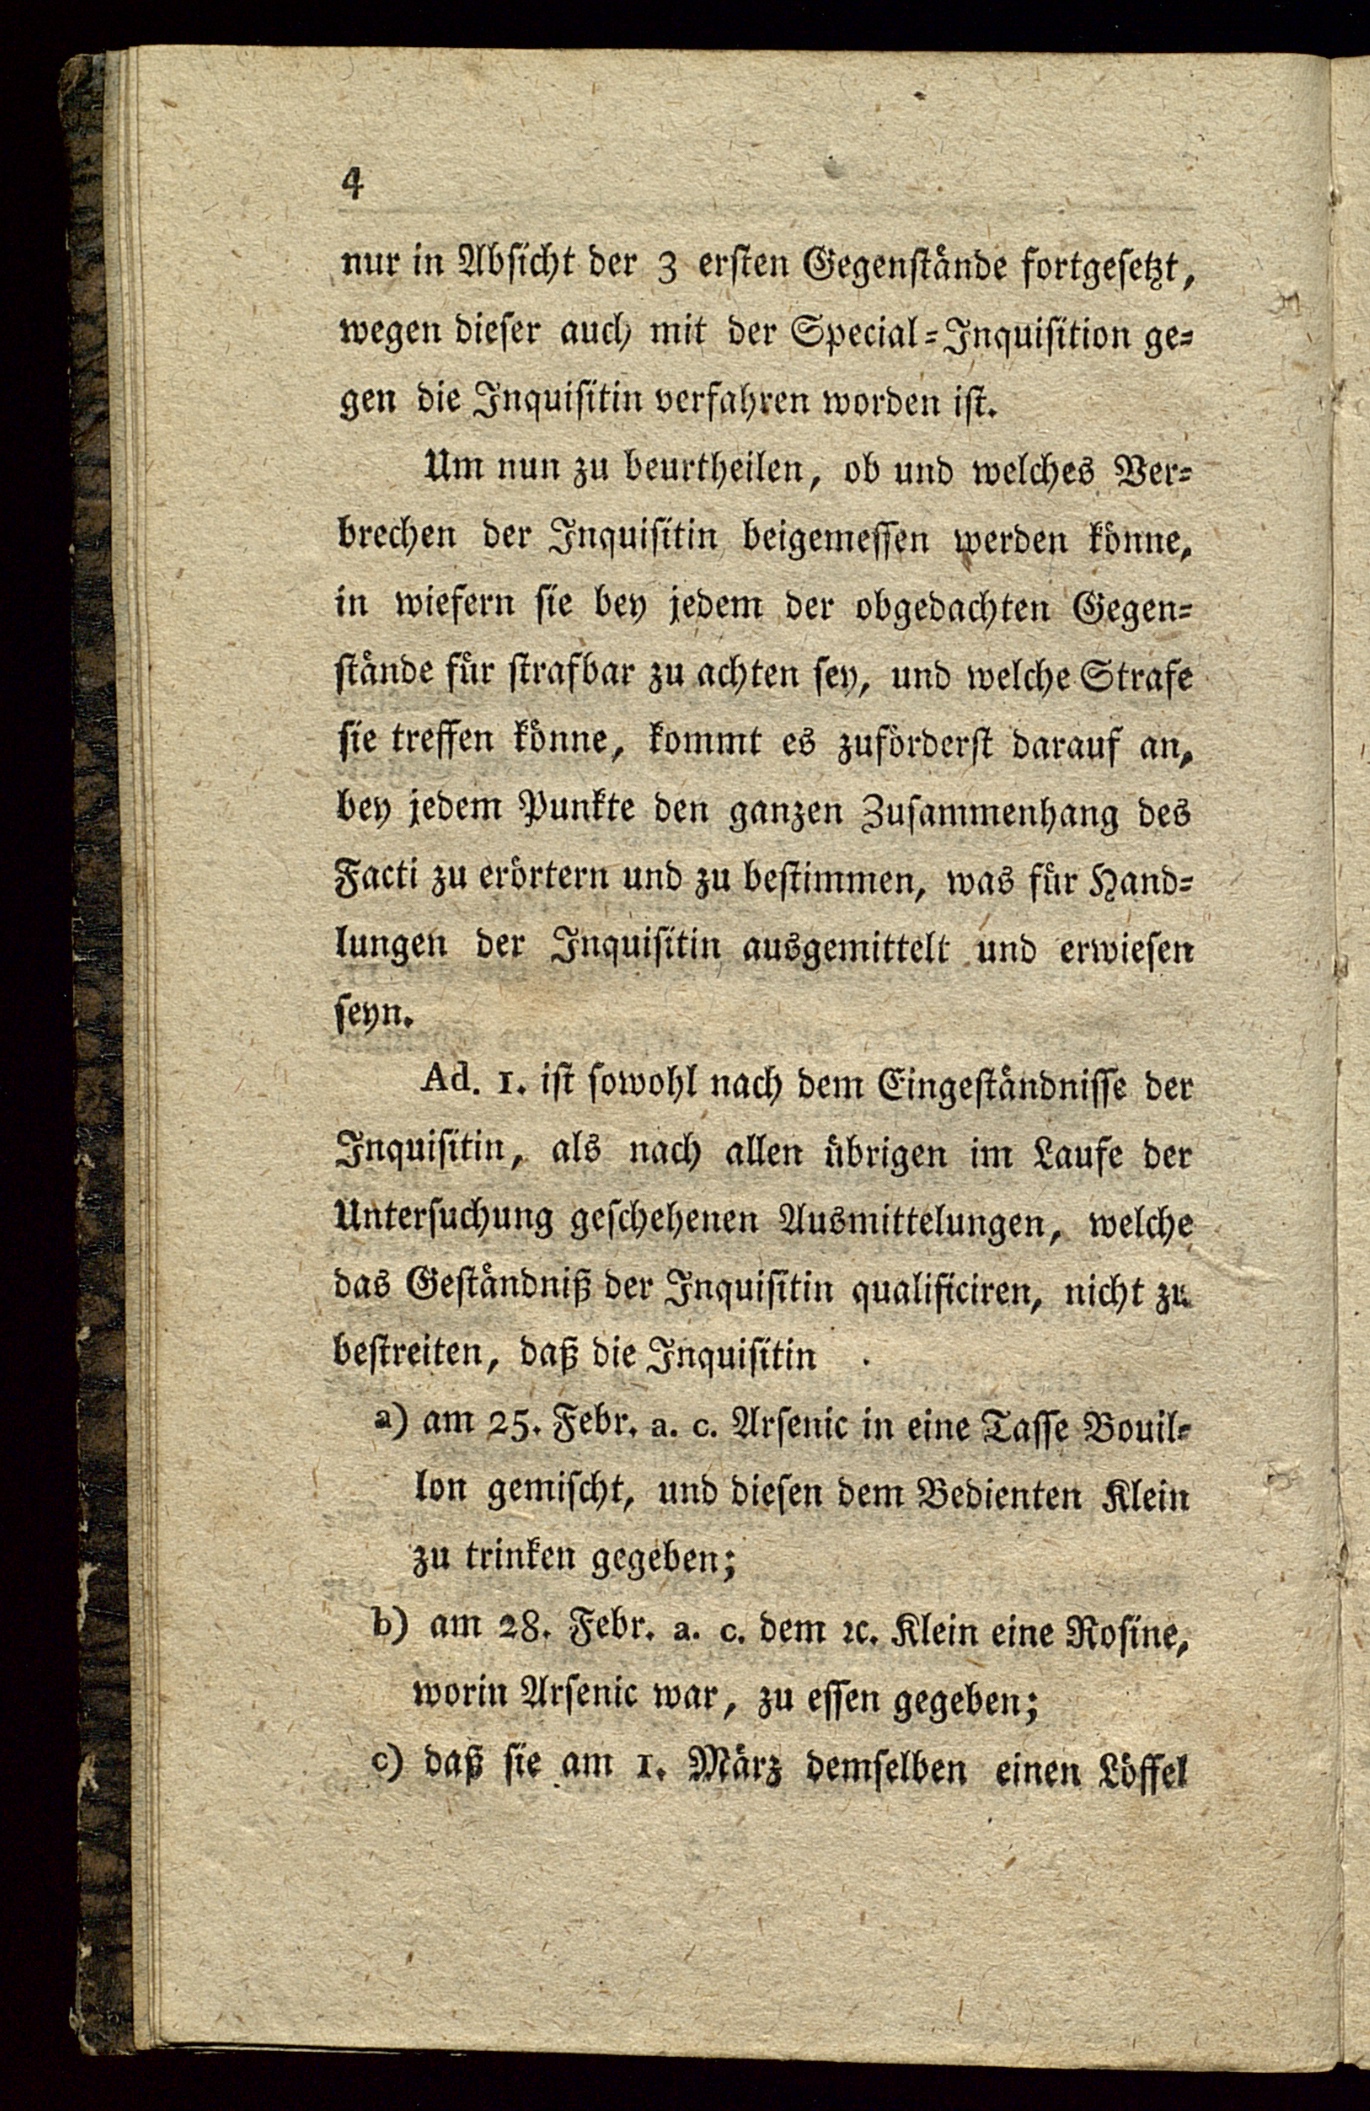 4
nur in Absicht der 3 ersten Gegenstände fortgesetzt,
wegen dieser auch mit der Special-Inquisition ge-
gen die Inquisitin verfahren worden ist.
Um nun zu beurtheilen, ob und welches Ver-
brechen der Inquisitin beigemessen werden könne,
in wiefern sie bey jedem der obgedachten Gegen-
stände für strafbar zu achten sey, und welche Strafe
sie treffen könne, kommt es zuförderst darauf an,
bey jedem Punkte den ganzen Zusammenhang des
Facti zu erörtern und zu bestimmen, was für Hand-
lungen der Inquisitin ausgemittelt und erwiesen
seyn.
Ad. 1. ist sowohl nach dem Eingeständnisse der
Inquisitin, als nach allen übrigen im Laufe der
Untersuchung geschehenen Ausmittelungen, welche
das Geständniß der Inquisitin qualificiren, nicht zu
bestreiten, daß die Inquisitin
a) am 25. Febr. a. c. Arsenic in eine Tasse Bouil-
lon gemischt, und diesen dem Bedienten Klein
zu trinken gegeben;
b) am 28. Febr. a. c. dem ꝛc. Klein eine Rosine,
worin Arsenic war, zu essen gegeben;
c) daß sie am 1. März demselben einen Löffel